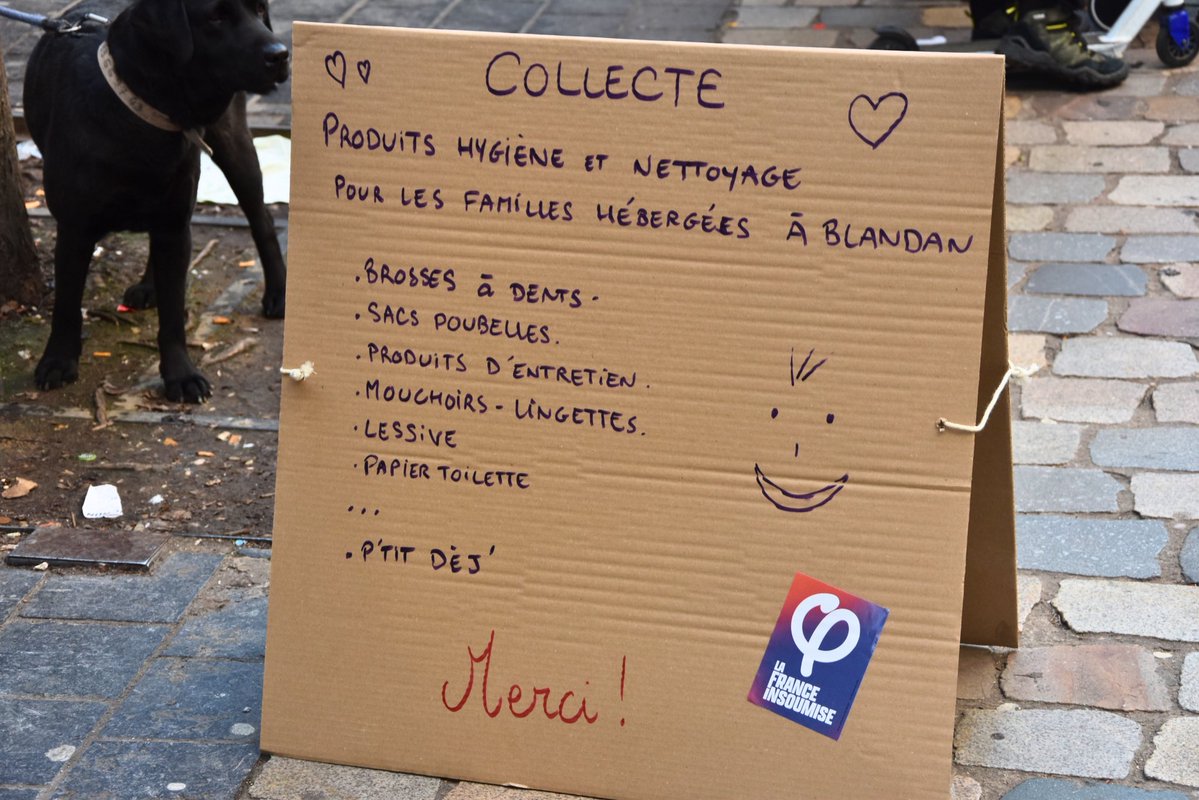 COLLECTE
PRODUITS HYGIÈNE ET NETTOYAGE
POUR LES FAMILLES HÉBERGÉES À BLANDAN
. BROSSES à DENTS.
. SACS POUBELLES.
. PRODUITS D'ENTRETIEN.
. MOUCHOIRS - LINGETTES.
. LESSIVE
. PAPIER TOILETTE
...
. P'TIT DÈJ'
Merci !
LA
FRANCE
iNSOUMISE